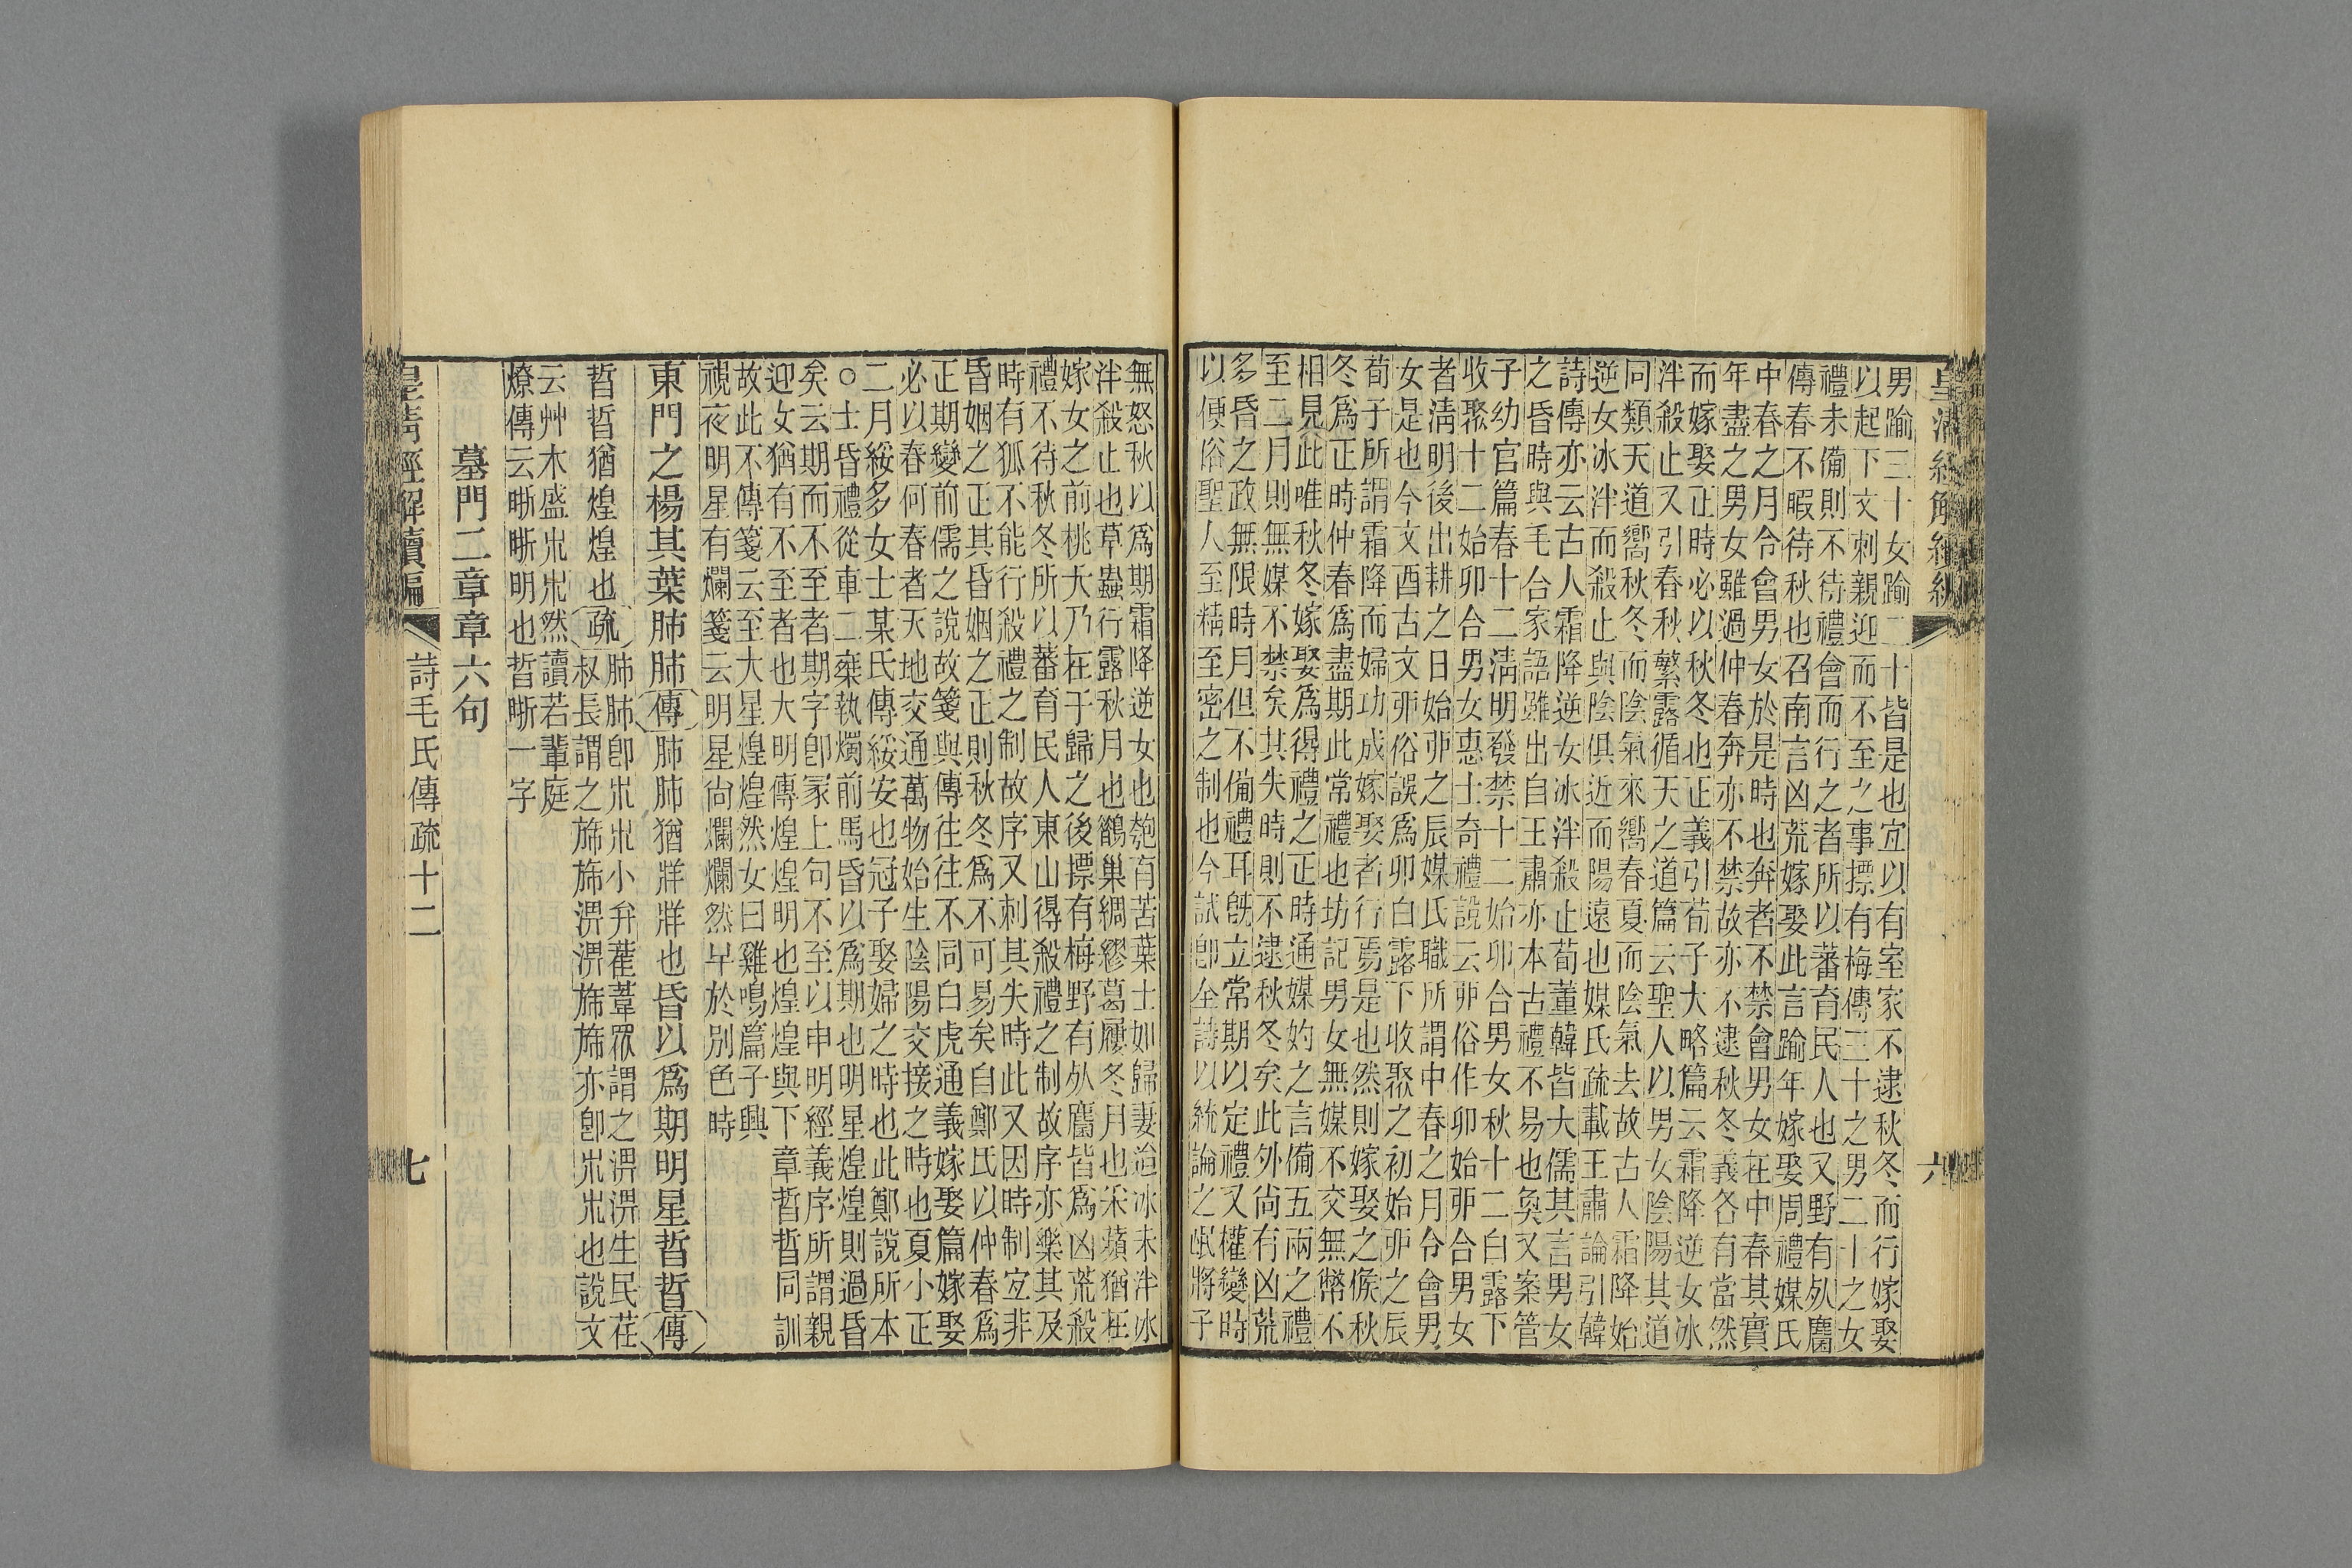 皇清經解續編
六
男踰三十女踰二十皆是也宜以有室家不逮秋冬而行嫁娶
以起下文刺親迎而不至之事摽有梅傳三十之男二十之女
禮未備則不待禮會而行之者所以蕃育民人也又野有𣦸麕
傳春不暇待秋也召南言凶荒嫁娶此言踰年嫁娶周禮媒氏
中春之月令會男女於是時也奔者不禁會男女在中春其實
年盡之男女雖過仲春奔亦不禁故亦不逮秋冬義各有當然
而嫁娶正時必以秋冬也正義引荀子大略篇云霜降逆女冰
泮殺止又引春秋繁露循天之道篇云聖人以男女陰陽其道
同類天道嚮秋冬而陰氣來嚮春夏而陰氣去故古人霜降始
逆女冰泮而殺止與陰俱近而陽遠也媒氏疏載王肅論引韓
詩傳亦云古人霜降逆女冰泮殺止荀董韓皆大儒其言男女
之昏時與毛合家語雖出自王肅亦本古禮不易也奐又案管
子幼官篇春十二淸明發禁十二始卯合男女秋十二白露下
收聚十二始卯合男女惠士奇禮說云丣俗作卯始丣合男女
者淸明後出耕之日始丣之辰媒氏職所謂中春之月令會男
女是也今文酉古文丣俗誤爲卯白露下收聚之初始丣之辰
荀子所謂霜降而婦功成嫁娶者行焉是也然則嫁娶之候秋
冬爲正時仲春爲盡期此常禮也坊記男女無媒不交無幣不
相見此唯秋冬嫁娶爲得禮之正時通媒妁之言備五兩之禮
至二月則無媒不禁矣其失時則不逮秋冬矣此外尚有凶荒
多昏之政無限時月但不備禮耳旣立常期以定禮又權變時
以便俗聖人至精至密之制也今試卽全詩以統論之氓將子
無怒秋以爲期霜降逆女也匏有苦葉士如歸妻迨冰未泮冰
泮殺止也草蟲行露秋月也鵲巢綢繆葛屨冬月也采蘋猶在
嫁女之前桃夭乃在于歸之後摽有梅野有𣦸麕皆爲凶荒殺
禮不待秋冬所以蕃育民人東山得殺禮之制故序亦樂其及
時有狐不能行殺禮之制故序又刺其失時此又因時制宜非
昏姻之正其昏姻之正則秋冬爲不可易矣自鄭氏以仲春爲
正期變前儒之說故箋與傳往往不同白虎通義嫁娶篇嫁娶
必以春何春者天地交通萬物始生陰陽交接之時也夏小正
二月綏多女士某氏傳綏安也冠子娶婦之時也此鄭說所本
○士昏禮從車二椉執燭前馬昏以爲期也明星煌煌則過昏
矣云期而不至者期字卽冡上句不至以申明經義序所謂親
迎女猶有不至者也大明傳煌煌明也煌煌與下章晢晢同訓
故此不傳箋云至大星煌煌然女曰雞鳴篇子興
視夜明星有爛箋云明星尙爛爛然早於別色時
東門之楊其葉肺肺傳肺肺猶牂牂也昏以爲期明星晢晢傳
晢晢猶煌煌也疏
肺肺卽𣎵𣎵小弁雚葦眾謂之淠淠生民荏
叔長謂之斾斾淠淠斾斾亦卽𣎵𣎵也說文
云艸木盛𣎵𣎵然讀若輩庭
燎傳云晣晣明也晢晣一字
墓門二章章六句
皇清經解續編
詩毛氏傳疏十二
七